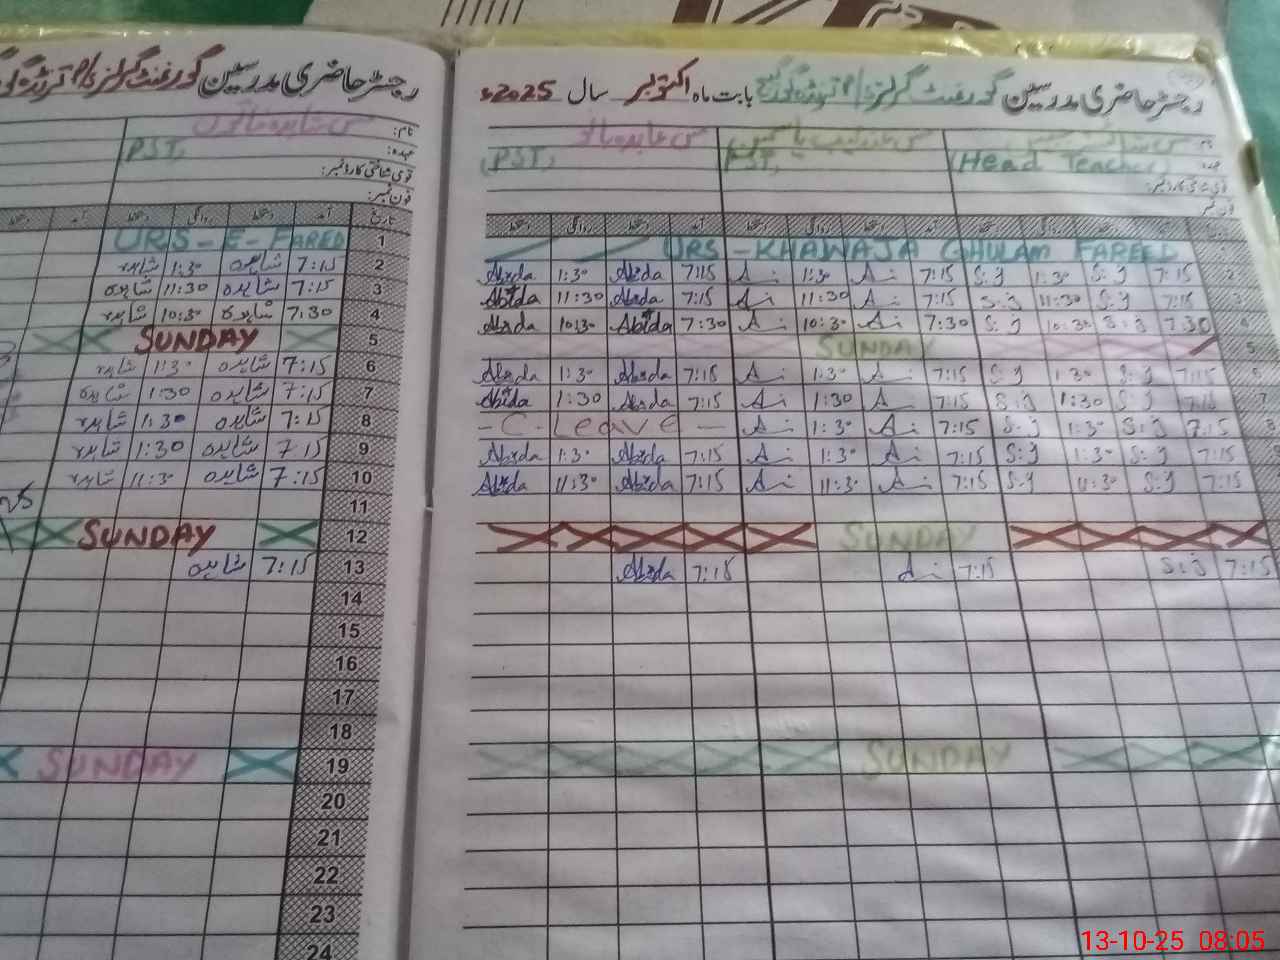 رجسٹر حاضری مدرسین گورنمنٹ گرلز
نام:
عہدہ: PST,
قومی شناختی کارڈ نمبر:
فون نمبر:
تاریخ آمد دستخط روانگی دستخط آمد دستخط
1 URS-E-FARED
2 7:15 شاہدہ 1:30 شاہدہ
3 7:15 شاہدہ 11:30 شاہدہ
4 7:30 شاہدہ 10:30 شاہدہ
5 SUNDAY
6 7:15 شاہدہ 1:30 شاہدہ
7 7:15 شاہدہ 1:30 شاہدہ
8 7:15 شاہدہ 1:30 شاہدہ
9 7:15 شاہدہ 1:30 شاہدہ
10 7:15 شاہدہ 11:30 شاہدہ
11
12 SUNDAY
13 7:15 شاہدہ
14
15
16
17
18
19 SUNDAY
20
21
22
23
24
رجسٹر حاضری مدرسین گورنمنٹ گرلز بابت ماہ اکتوبر سال 2025ء
(PST) PST, (Head Teacher)
قومی شناختی کارڈ نمبر:
دستخط روانگی دستخط آمد دستخط روانگی دستخط آمد دستخط روانگی دستخط آمد
URS-KHAWAJA GHULAM FAREED
Abida 1:30 Abida 7:15 1:30 7:15 S:J 1:30 S:J 7:15
Abida 11:30 Abida 7:15 11:30 7:15 S:J 11:30 S:J 7:15
Abida 10:30 Abida 7:30 10:30 7:30 S:J 10:30 S:J 7:30
SUNDAY
Abida 1:30 Abida 7:15 1:30 7:15 S:J 1:30 S:J 7:15
Abida 1:30 Abida 7:15 1:30 7:15 S:J 1:30 S:J 7:15
-C-Leave- 1:30 7:15 S:J 1:30 S:J 7:15
Abida 1:30 Abida 7:15 1:30 7:15 S:J 1:30 S:J 7:15
Abida 11:30 Abida 7:15 11:30 7:15 S:J 11:30 S:J 7:15
SUNDAY
Abida 7:15 7:15 S:J 7:15
SUNDAY
13-10-25 08:05